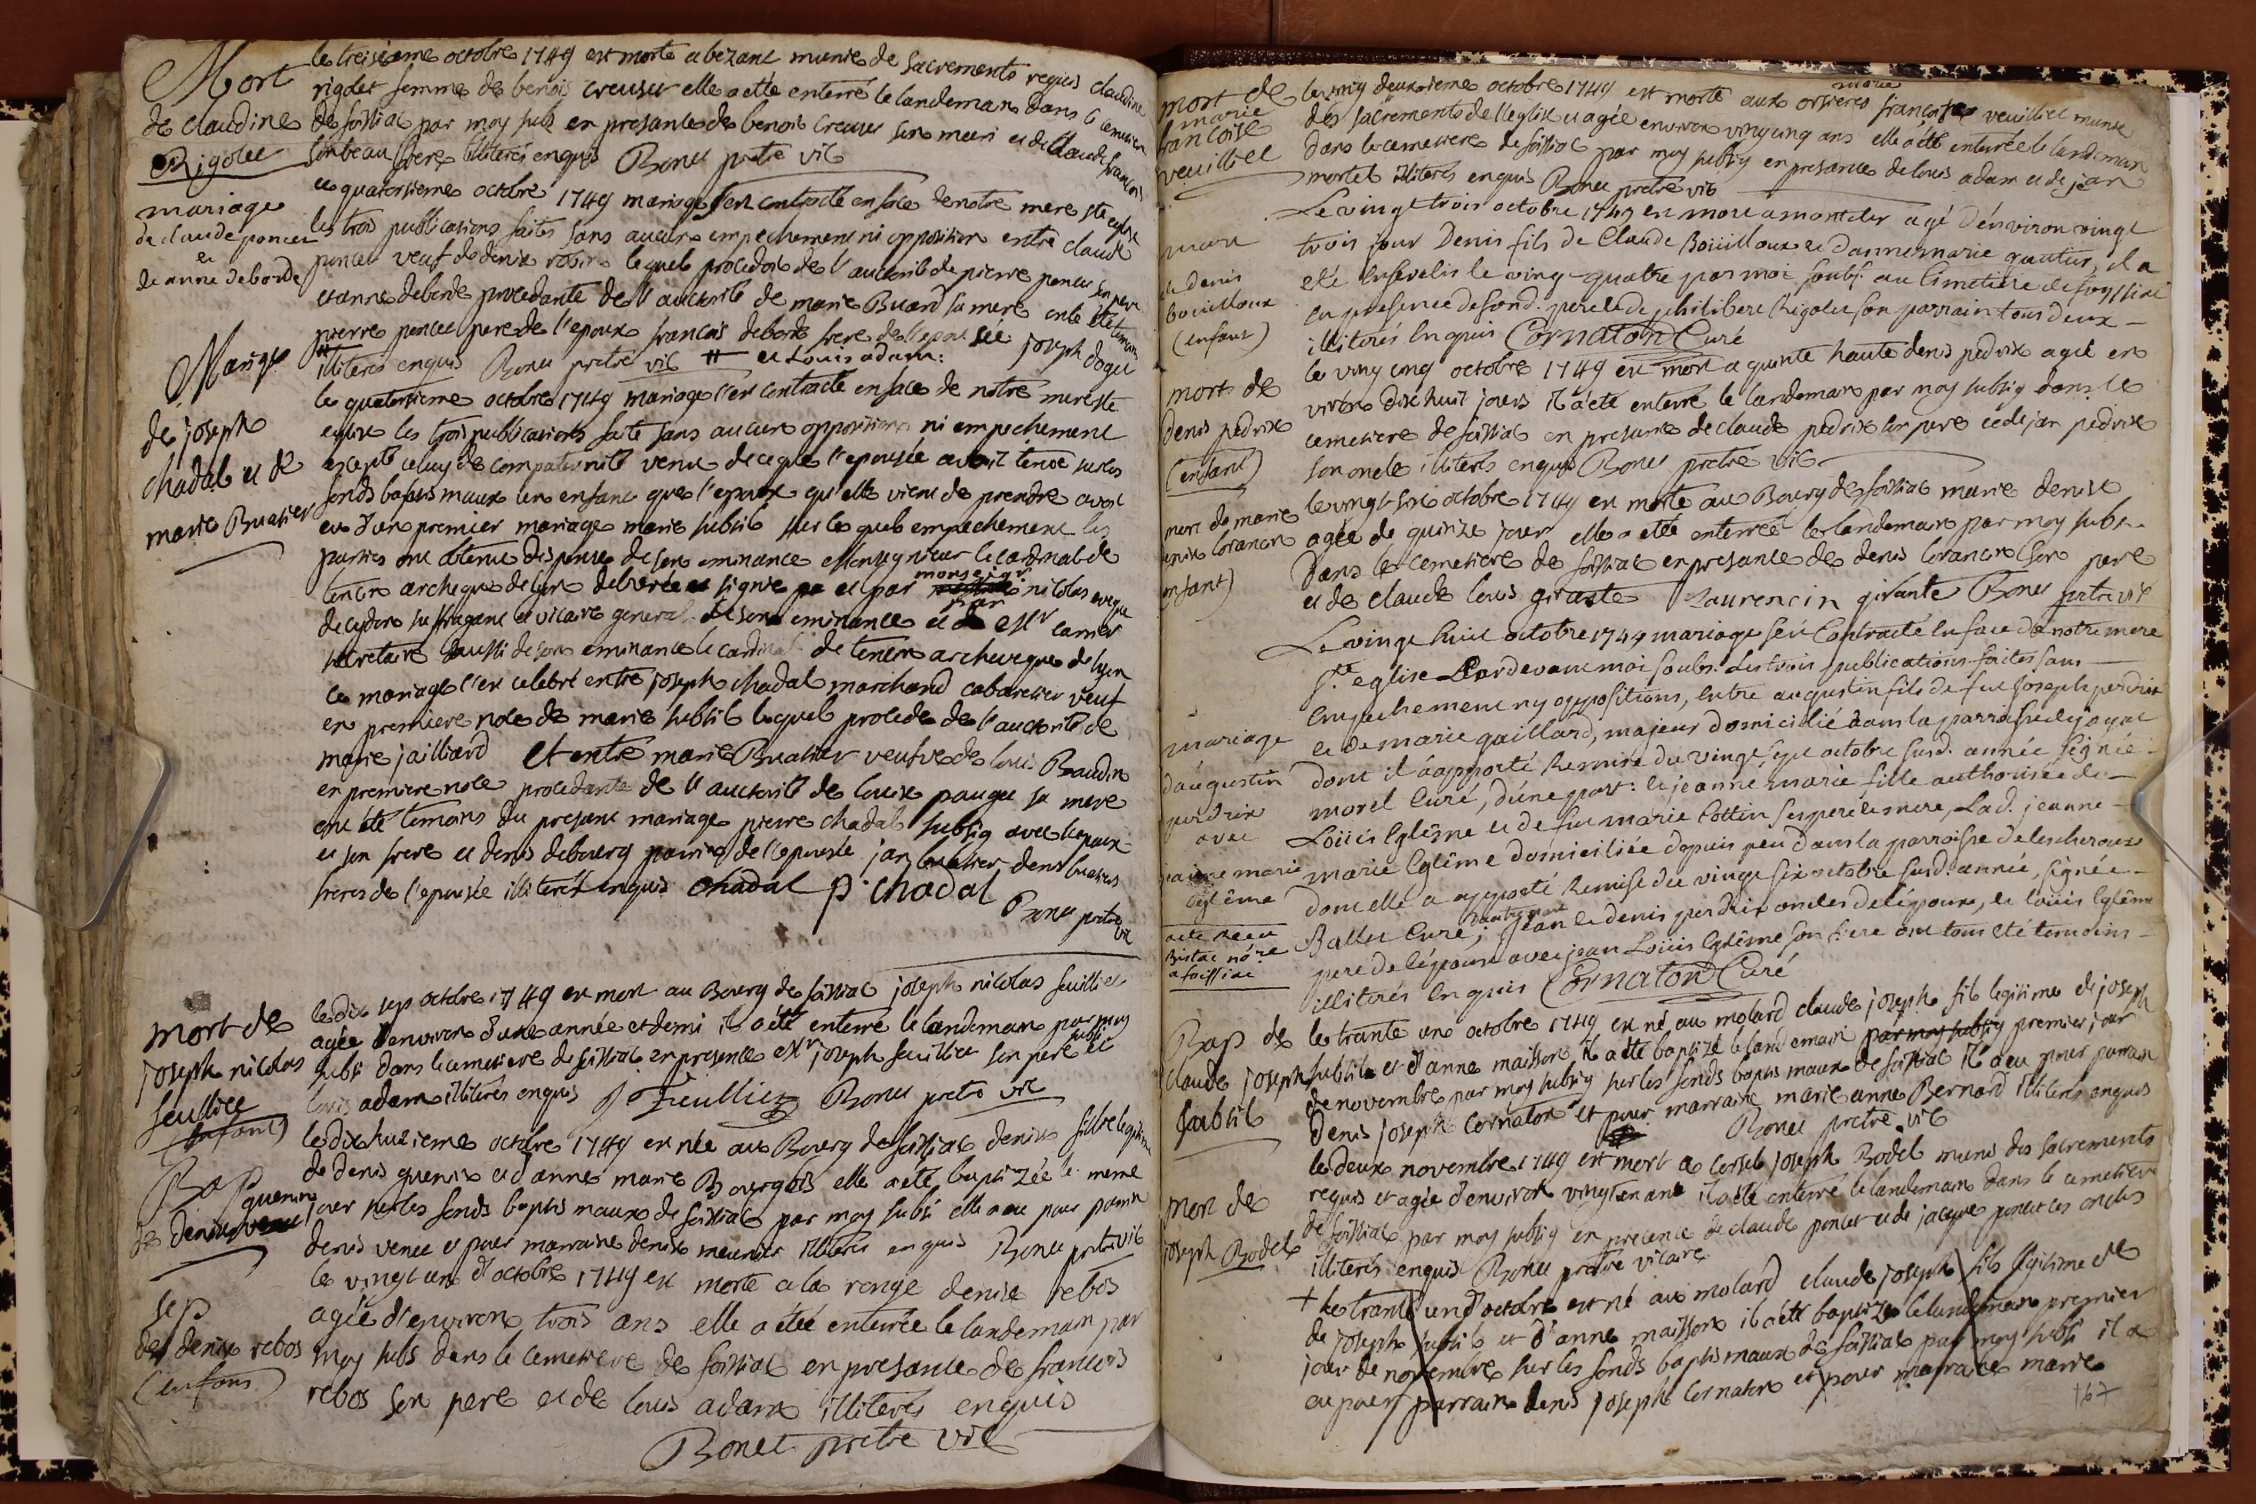 Mort
de claudine
Rigolet
le treisieme octobre 1749 est morte a bezanc munie de sacrements requis claudine
rigolet femme de benois creuser elle a été enterré le landemain dans le cemetiere
de foissiat par moy subs en presante de benois creuser son mari et de claude francois
son beau frere illiterés enquis Bonet pretre vic
mariage
de claude poncet
et
de anne deborde
le quatorsieme octobre 1749 mariage s'est contracté en face de notre mere ste eglise
les trois publications faites sans aucun empechement ni opposition entre claude
poncet veuf de denise robin lequel procedoit de l'auctorité de pierre poncet son pere
et anne deborde procedante de l'auctorité de marie Buard sa mere ont été temoins
pierre poncet pere de l'epoux francois deborde frere de l'epousée joseph dogu
illiterés enquis Bonet pretre vic # et Louis adam:
Mariage
de joseph
chadal et de
marie Buatier
le quatorsieme octobre 1749 mariage s'est contracté en face de notre mere ste
eglise les trois publications faite sans aucun opposition ni empechement
excepté celuy de compaternité venu de ce que l'epousée avoit tenu sur les
fonds baptismaux un enfant que l'epoux qu'elle vient de prendre avoit
eu d'un premier mariage marie subtil sur lequel empechement les
parties ont obtenu dispense de son eminance monseigneur le cardinal de
tencin archeque de lyon delivrée et signée et par monseigr nicolas eveque
de cydon suffragant et vicaire general de son eminance et par mr carrier
secretaire aussi de son eminance le cardinal de tencin archeveque de lyon
ce mariage s'est celebré entre joseph chadal marchand cabaretier veuf
en premiere noce de marie subtil lequel procede de l'auctorité de
marie jailliard et entre marie Buatier veufve de louis Baudin
en premiere noce procedante de l'auctorité de louise pauget sa mere
ont été temoins du presant mariage pierre chadal subsig avec lepoux
et son frere et denis debourg parain de l'epousée jan buatier denis buatier
freres de l'epousée illiterés enquis chadal p. chadal
Bonet pretre
vic
mort de
joseph nicolas
feuilliet
(enfant)
le dix sept octobre 1749 est mort au Bourg de foissiat joseph nicolas feuilliet
agée d'environ d'une année et demi il a été enterré le landemain par moy
subs dans le cemetiere de foissiat en presence de mr joseph feuilliet son pere subsi et
louis adam illiterés enquis J Feuilliez Bonet pretre vic
Bap
quenin
de denise
le dix huitieme octobre 1749 est née au Bourg de foissiat denise fillie legitime
de denis quenin et d'anne marie Bourgois elle a été baptizée le meme
jour sur les fonds baptis maux de foissiat par moy subsi elle a eu pour parain
denis venet et pour marraine denise meunier illiterés enquis Bonet pretre vic
sep
de denise rebos
(enfans)
le vingt un d'octobre 1749 est morte a la ronge denise rebos
agée d'environ trois ans elle a étée enterrée le landemain par
moy subs dans le cemetiere de foissiat en presante de francois
rebos son pere et de louis adam illiterés enquis
Bonet pretre vic
mort de
marie
francoise
veuilliet
le ving deuxsieme octobre 1749 est morte aux orsieres marie françoise veuilliet munie
des sacrements de l'eglise et agée environ vingcinq ans elle a été enterrée le landemain
dans le cemetiere de foissiat par moy subsig en presante de louis adam et de jean
mortet illiterés enquis Bonet pretre vic
mort
de denis
bouilloux
(enfant)
Le vingt trois octobre 1749 est mort a montcler agé d'environ vingt
trois jour Denis fils de Claude Boüilloux et d'anne marie gautier, il a
été ensevelis le ving-quatre par moi soubs. au Cimetiere de foyssiat
en presence de fond. pere et de philibert Rigolet son parrain tous deux
illiterés enquis Cornaton Curé
mort de
denis pedrix
(enfant)
le ving cinq octobre 1749 est mort a quinte haute denis pedrix agé en
viron dix huit jours il a été enterré le landemain par moy subsig dans le
cemetiere de foissiat en presante de claude pedrix son pere et de jan pedrix
son oncle illiterés enquis Bonet pretre vic
mort de marie
denise lorancin
enfant)
le vingt-six octobre 1749 est morte au Bourg de foissiat marie denise
agée de quinze jour elle a été enterreé le landemain par moy subs.
dans le cemetiere de foissiat en presante de denis lorancin son pere
et de claude louis girante Laurencin girante Bonet pretre vic
mariage
d'augustin
perdrix
avec
jeanne marie
eglême
acte receu
Bristac nore
a foissiat
Le vingt huit octobre 1749 mariage s'est Contracté en face de notre mere
ste eglise Pardevant moi soubs. les trois publications faites sans
empechement ny oppositions, entre augustin fils de fut joseph perdrix
et de marie gaillard, majeur domicilié dans la parroisse de jayat
dont il a apporté Remise du vingt sept octobre susd. année signée
morel Curé, d'une part: et jeanne marie fille authorisée de
Loüis Eglême et de fut marie Cottin ses pere et mere, Lad. jeanne
marie Eglême domiciliée depuis peu dans la parroisse de lescheroux
dont elle a apporté Remise du vingt six octobre susd. année, signée
Ballet Curé; d'autre part Jean et denis perdrix oncles de l'epoux, et loüis Eglême
pere de l'epouse avec jean Loüis Eglême son frere ont tous été temoins
illiterés enquis Cornaton Curé
Bap de
claude joseph
subtil
le trante un octobre 1749 est né au molard claude joseph fils legitime de joseph
subtil et d'anne maisson il a été baptizé le landemain par moy subsig premier jour
de novembre par moy subsig sur les fonds baptis maux de foissiat il a eu pour parrain
denis joseph cornaton et pour marraine marie anne Bernard illiterés enquis
Bonet pretre vic
mort de
joseph Bodet
le deux novembre 1749 est mort a corset joseph Bodet munis des sacrements
requis et agée d'environ vingt un ans il a été enterré le landemain dans le cemetiere
de foissiat par moy subsig en precence de claude poncet et de jacque poncet ces oncles
illiterés enquis Bonet pretre vicaire
+ le trante un d'octobre est né aux molard claude joseph fils legitime de
de joseph subtil et d'anne maisson il a été baptizé le landemain premier
jour de novembre sur les fonds baptismaux de foissiat par moy subsi il a
eu pour parrain denis joseph cornaton et pour marraine marie
167